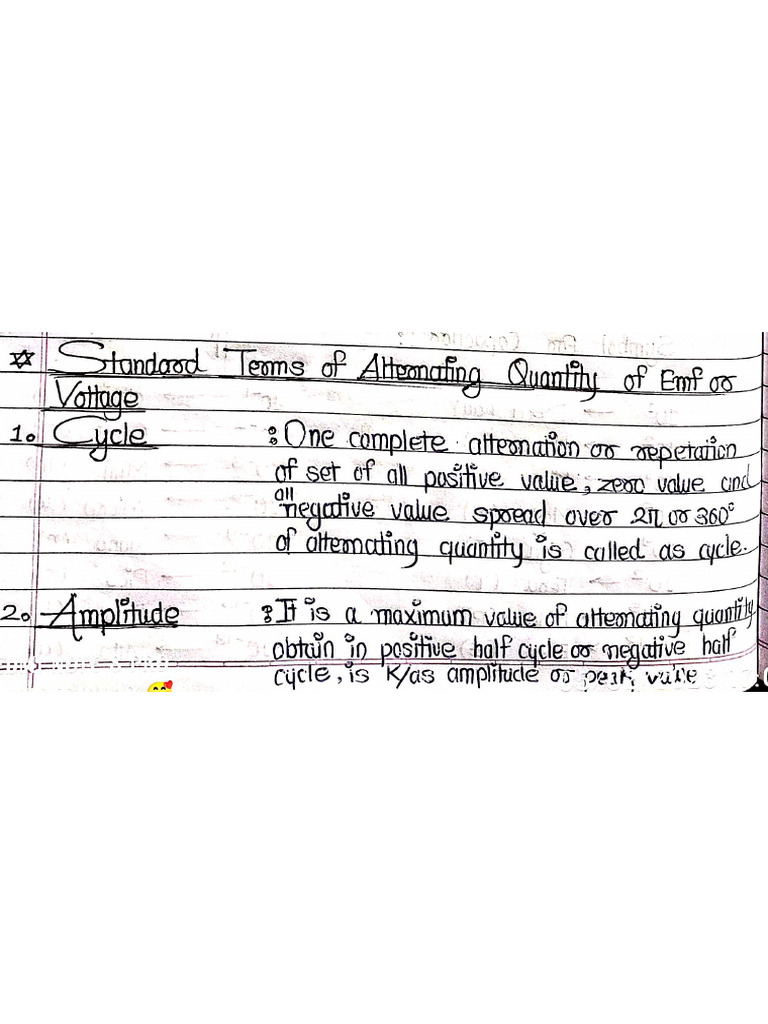 ☆ Standard Terms of Alternating Quantity of Emf or
Voltage
1. Cycle : One complete alternation or repetation
of set of all positive value, zero value and
all
negative value spread over 2π or 360°
of alternating quantity is called as cycle.
2. Amplitude : It is a maximum value of alternating quantity
obtain in positive half cycle or negative half
cycle, is K/as amplitude or peak value